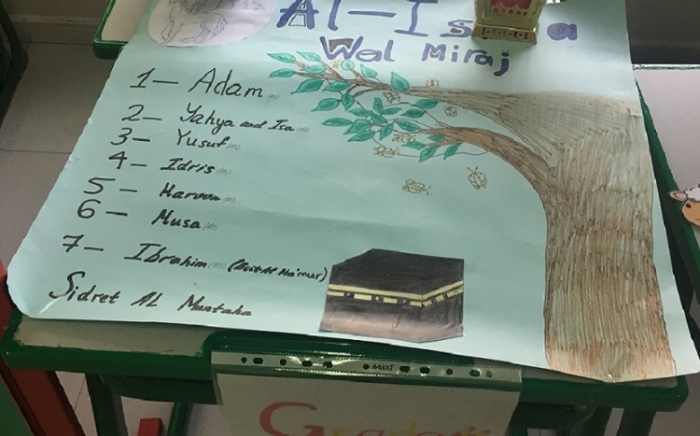 Al-Isra
Wal Miraj
1- Adam
2- Yahya and Isa
3- Yusuf
4- Idris
5- Haroon
6- Musa
7- Ibrahim (Bait Al Ma'mur)
Sidret AL Muntaha
MAXI